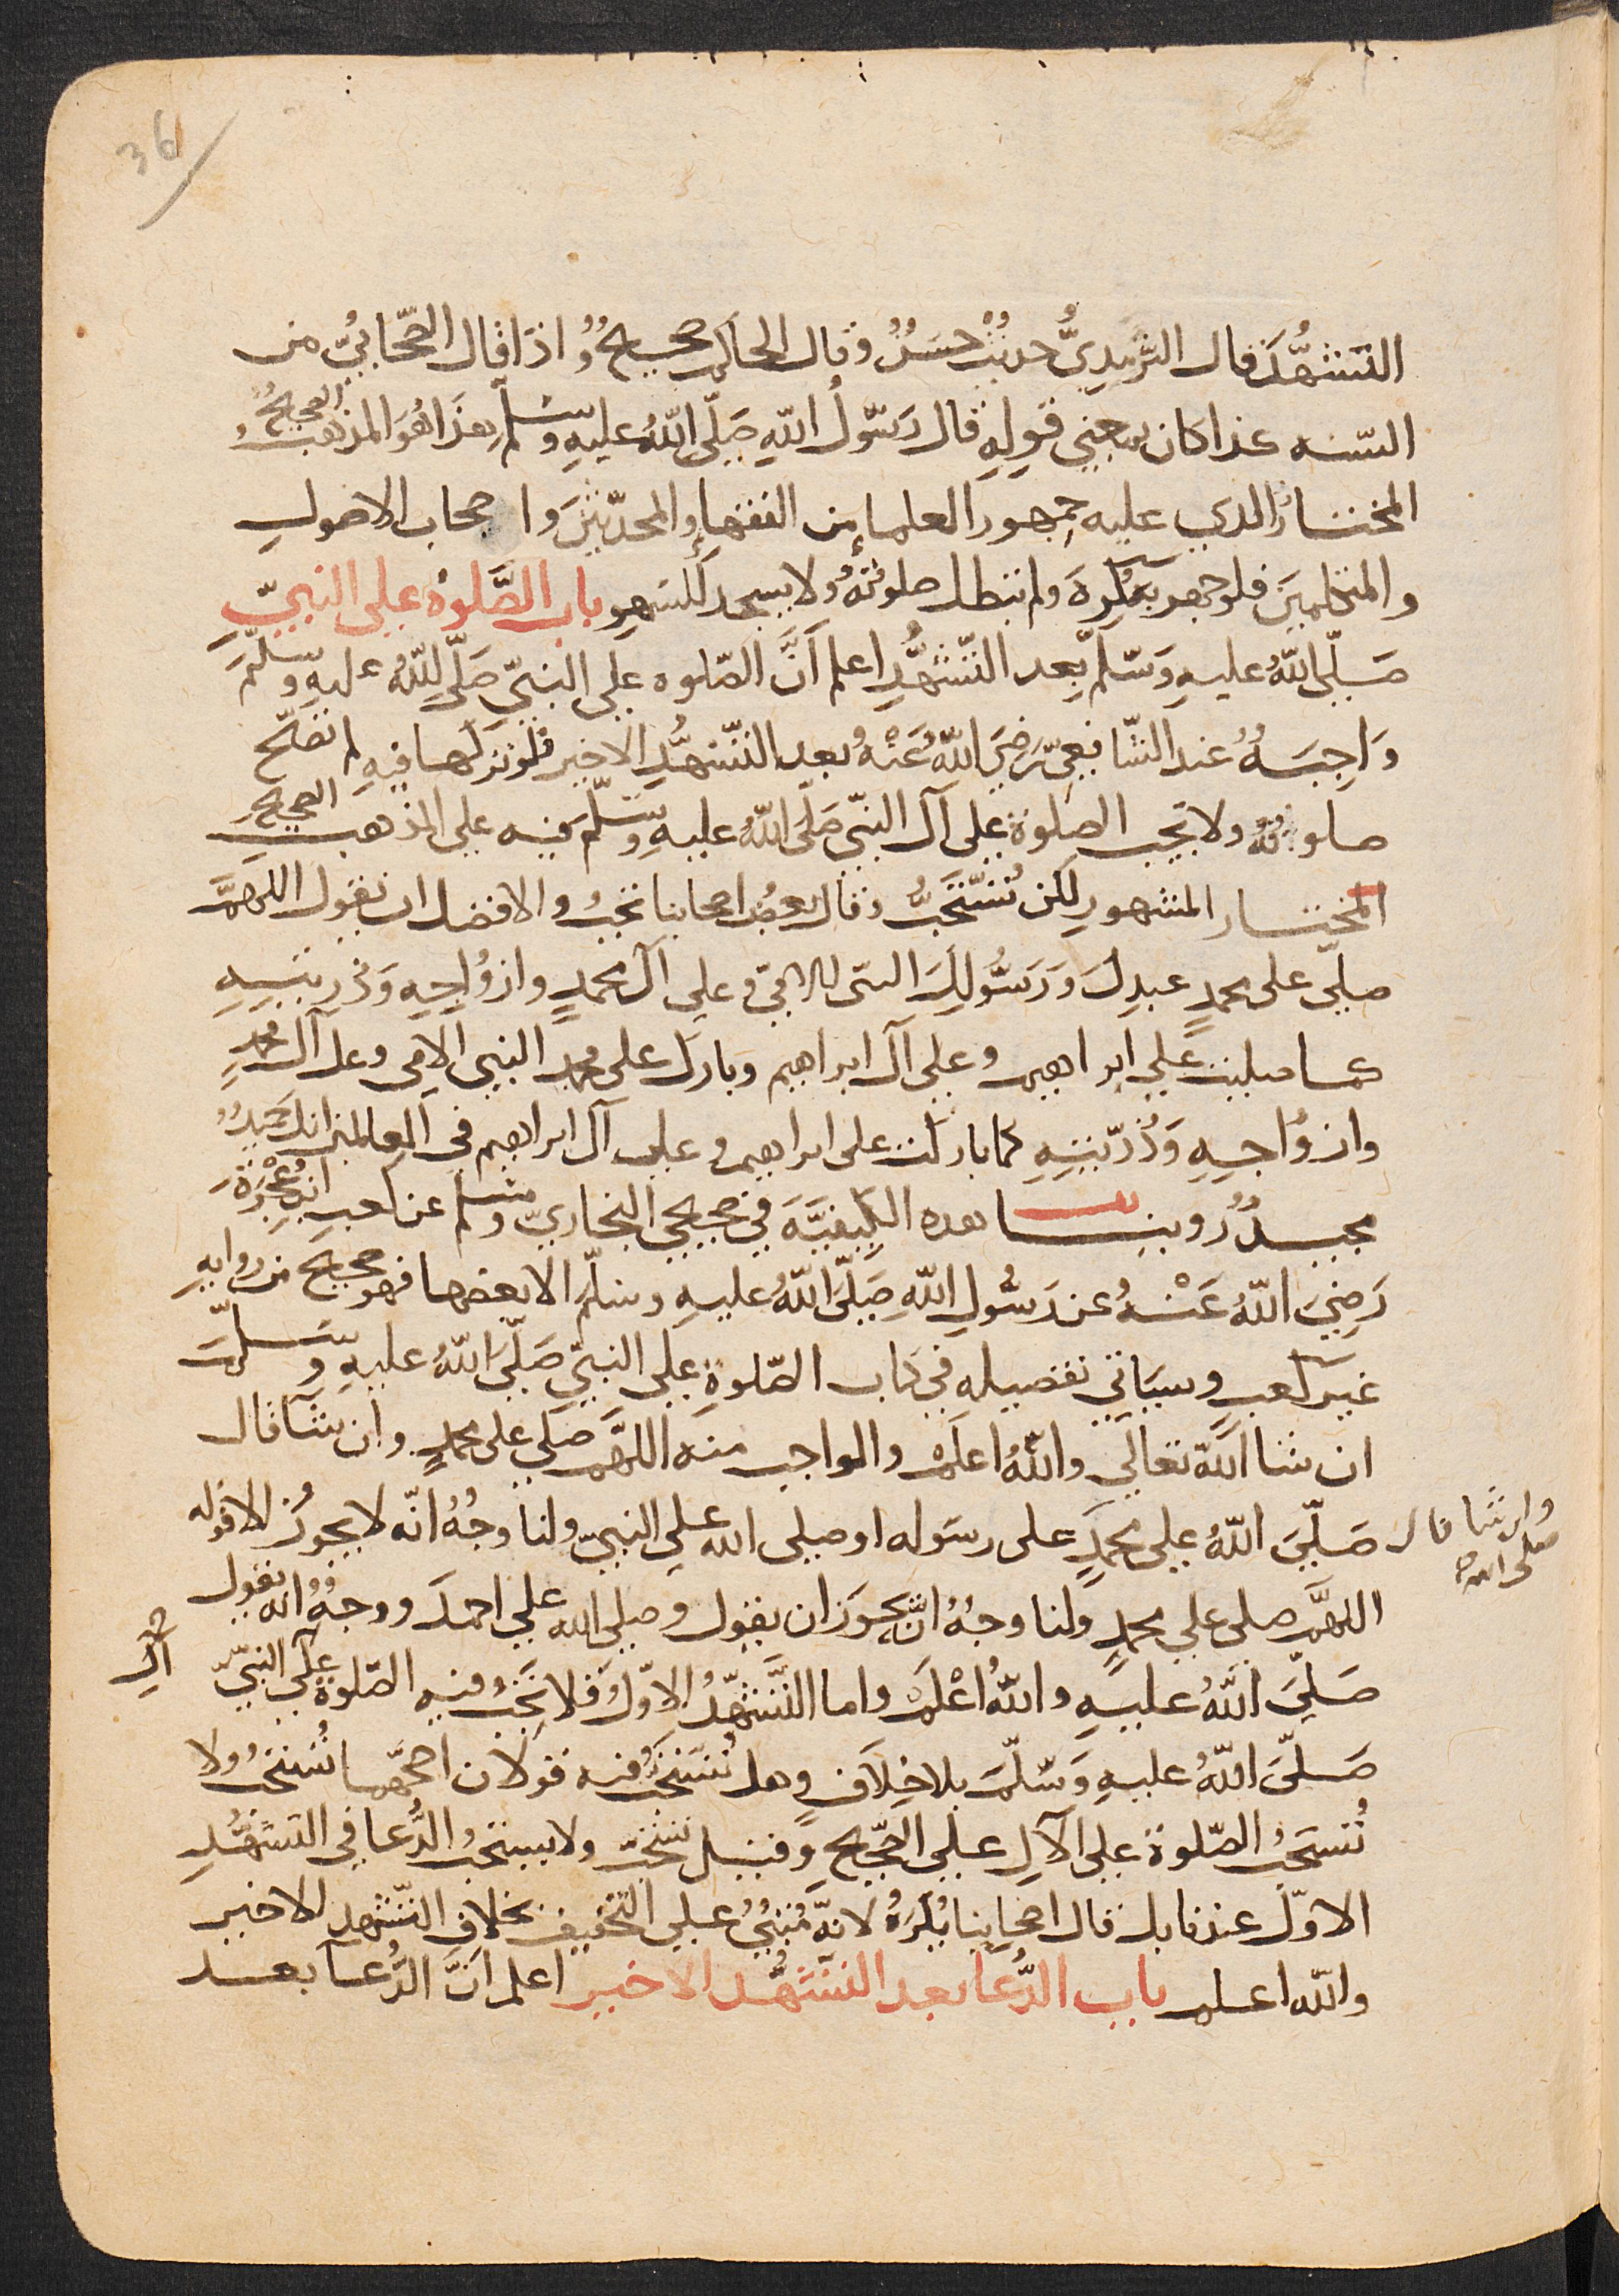 36
التشهُّدَ قال الترمِدِيُّ حديثٌ حسَنٌ وقال الحاكم صحيحٌ واذا قال الصّحَابيُّ من
السّنه كذا كان بمعني قولِهِ قال رَسُولُ اللّهِ صَلَّي اللّهُ عليهِ وسَلّم هذَا هُوَ المذهب الصحيحُ
المختارُ الدي عليه جمهور العلماءِ من الفقهاءِ والمحدّثينَ واصحاب الاصولِ
والمتكلمينَ فلو جهر به كُرِهَ ولم تبطل صلوتهُ ولا يسجد للسَهوِ باب الصَّلوة علي النبيّ
صَلّي اللّهُ عليهِ وَسَلّم بعد التّشهُّدِ اعلم اَنَّ الصّلوه علي النبيّ صَلّي اللّهُ عليهِ وسَلّمَ
وَاجِبَةٌ عند الشّافعيّ رَضِيَ اللّهُ عَنْهُ بعد التّشهُّدِ الاخير فلو تركها فيهِ لم تصَحّ
صلوتهُ ولا تجب الصلوة علي آل النبيّ صَلّي اللّهُ عليهِ وسَلّم فيه علي المذهب الصحيح
المختار المشهور لكن تُسْتَحَبُّ وقال بعضُ اصحابنا تجبُ والافضل ان يقول اللهمَّ
صلّي على محمدٍ عبدِكَ وَرَسُولِكَ النبي الامّي وعلي آل محمدٍ وازوَاجِهِ وَذريتِهِ
كما صليت علي ابراهيم وعلي آل ابراهيم وبارك على محمد النبي الامي وعل آل محمدٍ
وازوَاجِهِ وَذُرّيتِهِ كما باركت على ابراهيم وعلى آل ابراهيم في العالمين انك حميدٌ
مجيدٌ روينا هده الكيفيَّةَ في صحيحي البخاريّ ومسلم عن كعب ابن عُجْرَةَ
رَضِيَ اللّهُ عَنْهُ عن رَسُولِ اللّهِ صَلّي اللّهُ عليهِ وسلّم الا بعضها فهو صحيح من روايهِ
غير كعبٍ وسيَاتي تفصيله في كتاب الصّلوةِ علي النبيّ صَلّي اللّهُ عليهِ وسَلّمَ
ان شا اللّه تعالي واللّهُ اعلمُ والواجب منه اللهمَّ صلي على محمدٍ وان شآ قال
صَلّيَ اللّهُ علي محمدٍ على رسَوله او صلى الله علي النبيّ ولنا وجهٌ انّه لا يجوزُ الا قوله
وان شا قال
صلى الله
اللهمَّ صلى علي محمدٍ ولنا وجهٌ انّه يجوزان يقول وصلي الله علي احمدَ ووجهٌ انه يقول
صَلّيَ اللّهُ عليهِ واللّهُ اعْلمَ واما التّشهّدُ الاوّلُ فلا تجبُ فيهِ الصّلوةُ علي النبيّ
آلِ
صَلّيَ اللّهُ عليهِ وَسَلّمَ بلا خِلَافٍ وهل تُستحَبُّ فيه قولان اصحّهما تُستحبُّ ولا
تُستحَبُّ الصّلوة علي الآلِ علي الصَّحيحِ وقيل تستحَبّ ولا يستحبُّ الدُّعا في التشهّدِ
الاوّل عندنا بل قال اصحابنا يُكرَهُ لانهُ مَبْنِيٌّ علي التخفيف بخلافِ التّشهدِ الاخير
واللّه اعلم باب الدُّعا بعد التّشهُّد الاخير اعلم انّ الدُّعآ بعد